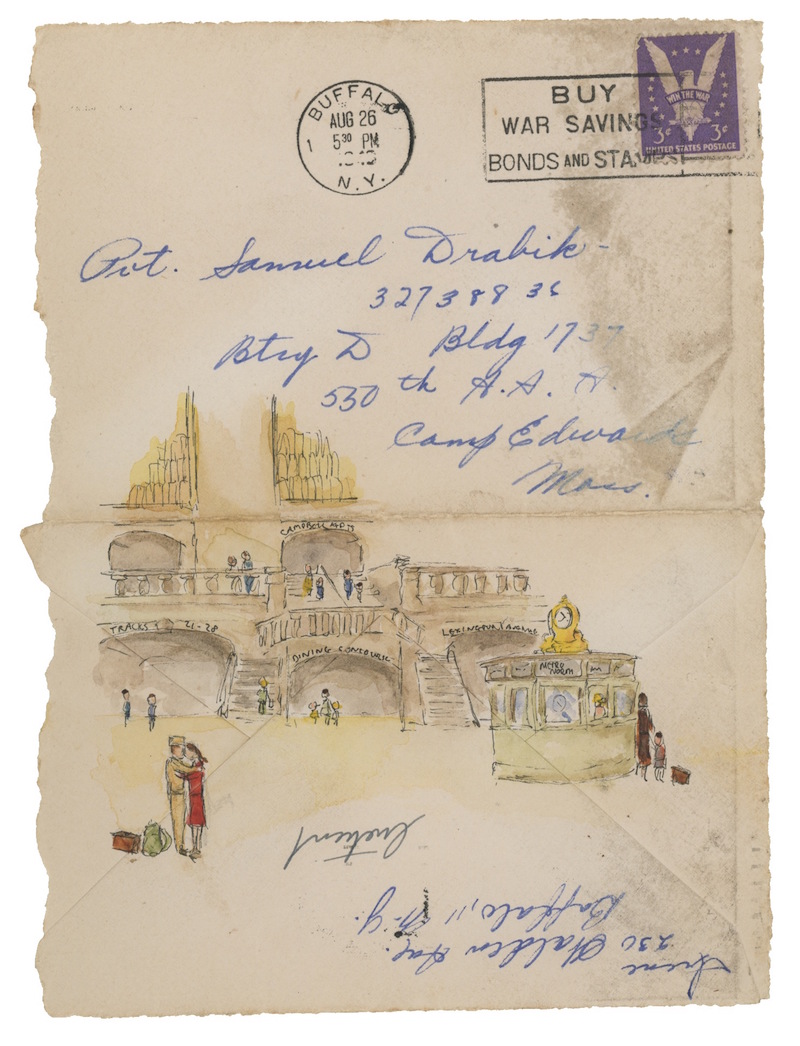 BUFFALO
AUG 26
1 5 30 PM
N.Y.
BUY
WAR SAVINGS
BONDS AND STAMPS
WIN THE WAR
3¢ 3¢
UNITED STATES POSTAGE
Pvt. Samuel Drabik-
32738836
Btry D Bldg 1737
530 th A.A. A.
Camp Edwards
Mass.
CAMPBELL APTS
TRACKS 21-28
DINING CONCOURSE
LEXINGTON AVENUE
METRO
NORTH
Irene
230 Walden Ave.
Buffalo, 11 N.Y.